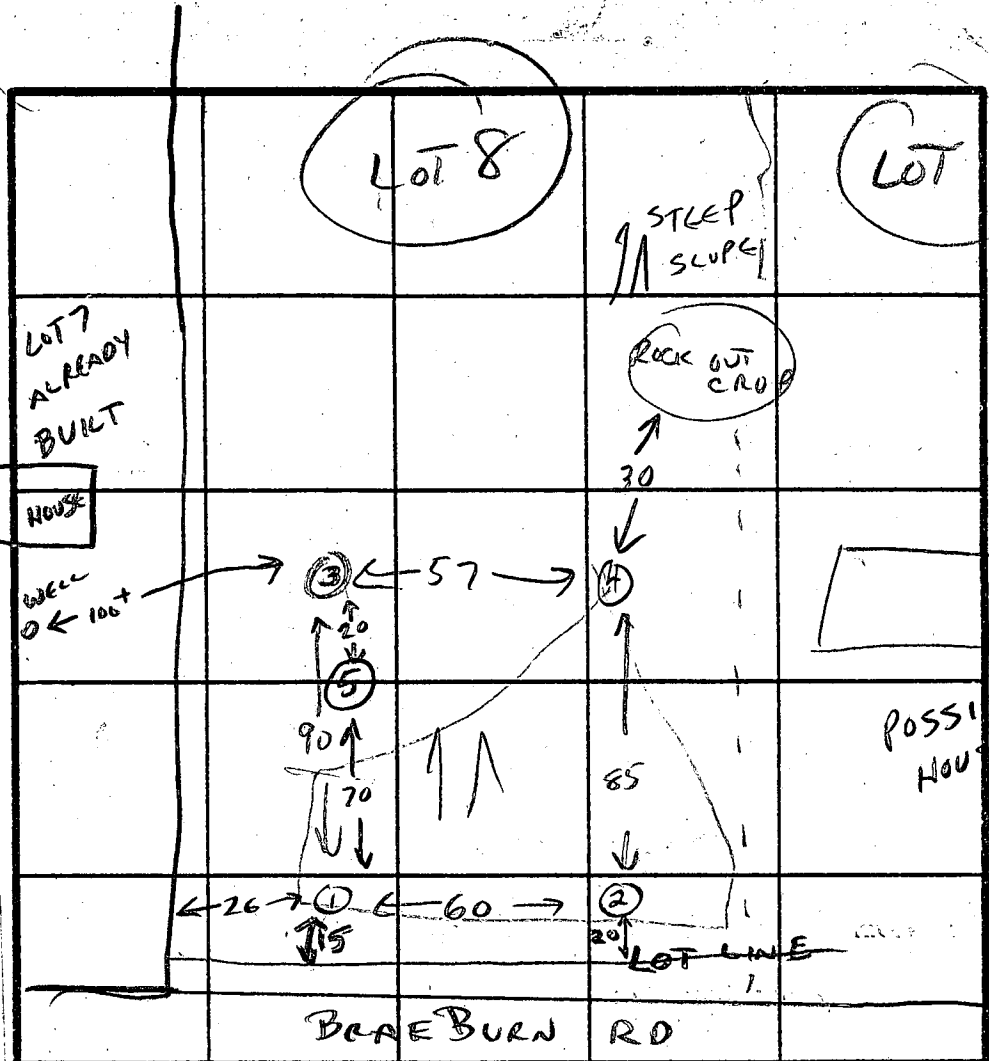 LOT 8
LOT
STEEP
SLOPE
LOT 7
ALREADY
BUILT
ROCK OUT
CROP
30
HOUSE
WELL
100+
3
57
4
20
5
90
70
85
POSSI
HOU
26
1
60
2
15
20
LOT LINE
BRAEBURN RD